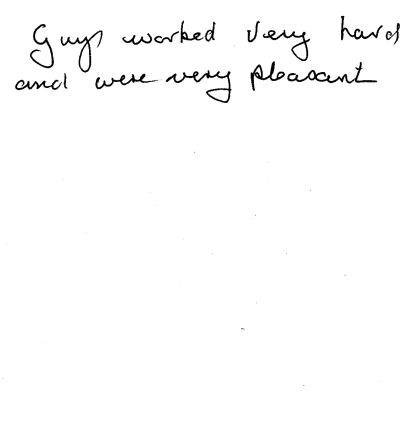 Guys worked very hard
and were very pleasant